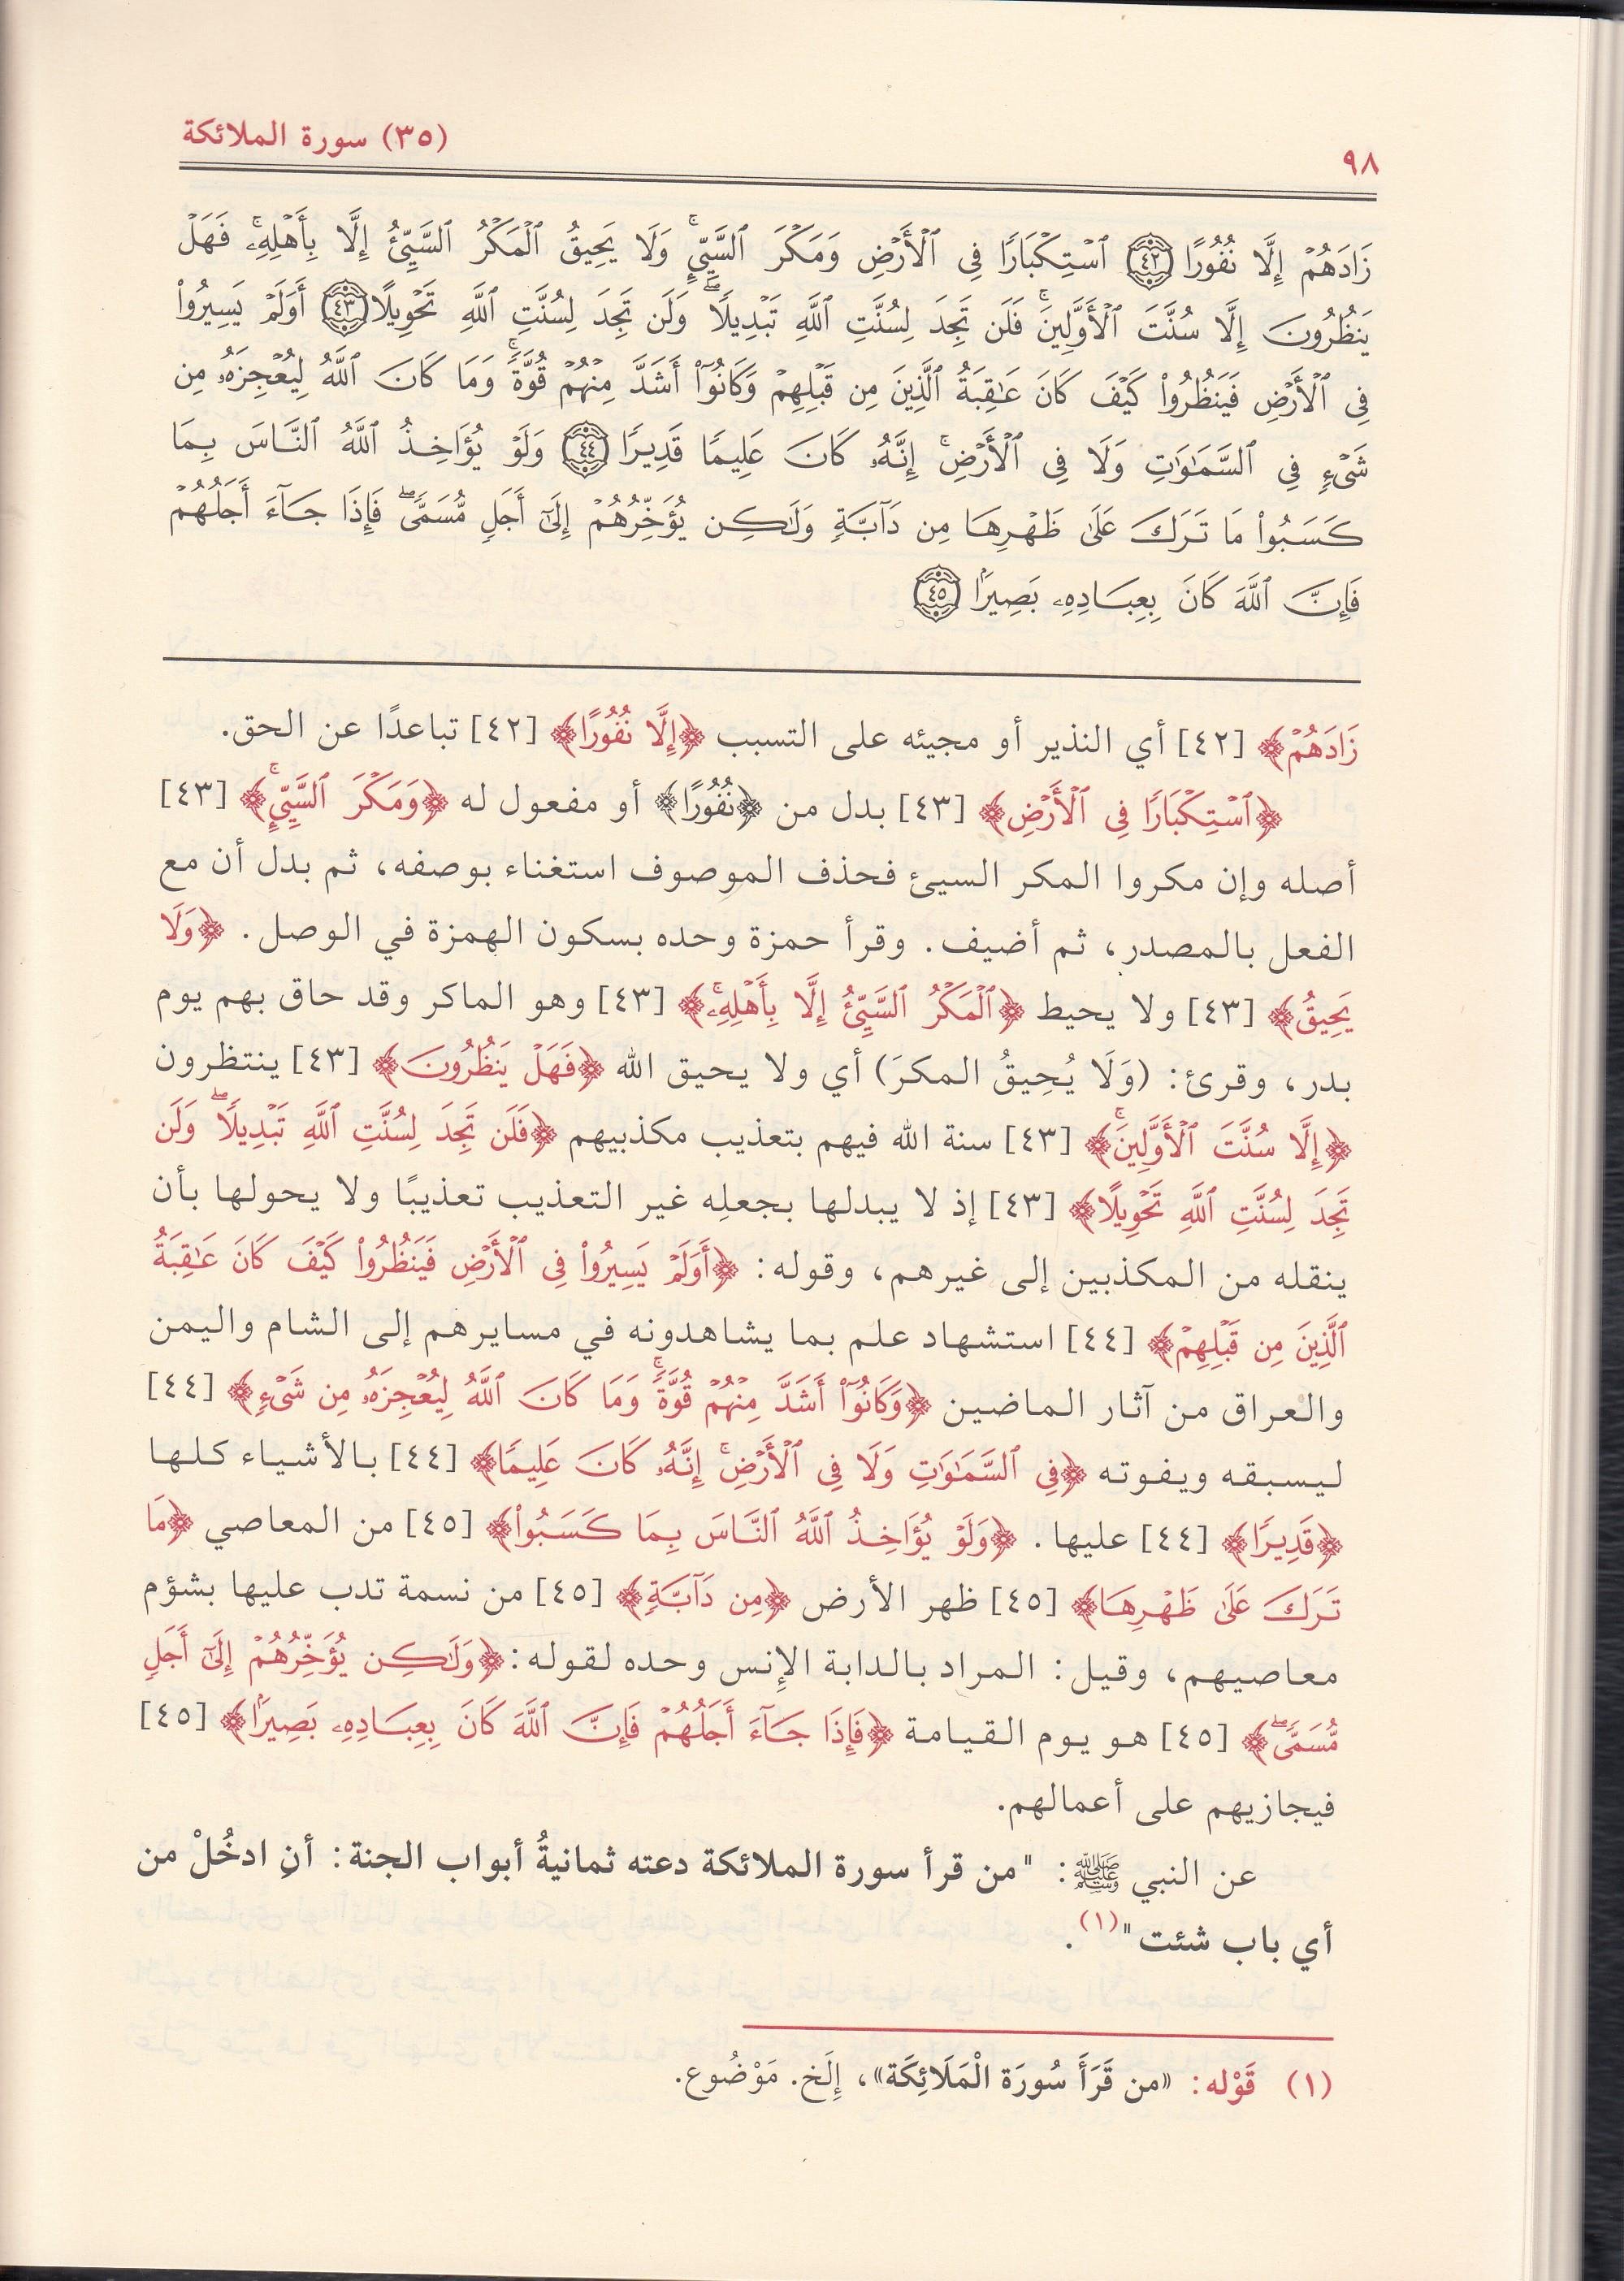 ٩٨
(٣٥) سورة الملائكة
زَادَهُمْ إِلَّا نُفُورًا ٤٢ ٱسْتِكْبَارًا فِى ٱلْأَرْضِ وَمَكْرَ ٱلسَّيِّئِ ۚ وَلَا يَحِيقُ ٱلْمَكْرُ ٱلسَّيِّئُ إِلَّا بِأَهْلِهِۦ ۚ فَهَلْ
يَنظُرُونَ إِلَّا سُنَّتَ ٱلْأَوَّلِينَ ۚ فَلَن تَجِدَ لِسُنَّتِ ٱللَّهِ تَبْدِيلًا ۖ وَلَن تَجِدَ لِسُنَّتِ ٱللَّهِ تَحْوِيلًا ٤٣ أَوَلَمْ يَسِيرُوا۟
فِى ٱلْأَرْضِ فَيَنظُرُوا۟ كَيْفَ كَانَ عَـٰقِبَةُ ٱلَّذِينَ مِن قَبْلِهِمْ وَكَانُوٓا۟ أَشَدَّ مِنْهُمْ قُوَّةً ۚ وَمَا كَانَ ٱللَّهُ لِيُعْجِزَهُۥ مِن
شَىْءٍ فِى ٱلسَّمَـٰوَٰتِ وَلَا فِى ٱلْأَرْضِ ۚ إِنَّهُۥ كَانَ عَلِيمًا قَدِيرًا ٤٤ وَلَوْ يُؤَاخِذُ ٱللَّهُ ٱلنَّاسَ بِمَا
كَسَبُوا۟ مَا تَرَكَ عَلَىٰ ظَهْرِهَا مِن دَآبَّةٍ وَلَـٰكِن يُؤَخِّرُهُمْ إِلَىٰٓ أَجَلٍ مُّسَمًّى ۖ فَإِذَا جَآءَ أَجَلُهُمْ
فَإِنَّ ٱللَّهَ كَانَ بِعِبَادِهِۦ بَصِيرًۢا ٤٥
زَادَهُمْ﴾ [٤٢] أي النذير أو مجيئه على التسبب ﴿إِلَّا نُفُورًا﴾ [٤٢] تباعدًا عن الحق.
﴿ٱسْتِكْبَارًا فِى ٱلْأَرْضِ﴾ [٤٣] بدل من ﴿نُفُورًا﴾ أو مفعول له ﴿وَمَكْرَ ٱلسَّيِّئِ ۚ﴾ [٤٣]
أصله وإن مكروا المكر السيئ فحذف الموصوف استغناء بوصفه، ثم بدل أن مع
الفعل بالمصدر، ثم أضيف. وقرأ حمزة وحده بسكون الهمزة في الوصل. ﴿وَلَا
يَحِيقُ﴾ [٤٣] ولا يحيط ﴿ٱلْمَكْرُ ٱلسَّيِّئُ إِلَّا بِأَهْلِهِۦ ۚ﴾ [٤٣] وهو الماكر وقد حاق بهم يوم
بدر، وقرئ: (وَلَا يُحِيقُ المكرَ) أي ولا يحيق الله ﴿فَهَلْ يَنظُرُونَ﴾ [٤٣] ينتظرون
﴿إِلَّا سُنَّتَ ٱلْأَوَّلِينَ ۚ﴾ [٤٣] سنة الله فيهم بتعذيب مكذبيهم ﴿فَلَن تَجِدَ لِسُنَّتِ ٱللَّهِ تَبْدِيلًا ۖ وَلَن
تَجِدَ لِسُنَّتِ ٱللَّهِ تَحْوِيلًا﴾ [٤٣] إذ لا يبدلها بجعلِه غير التعذيب تعذيبًا ولا يحولها بأن
ينقله من المكذبين إلى غيرهم، وقوله: ﴿أَوَلَمْ يَسِيرُوا۟ فِى ٱلْأَرْضِ فَيَنظُرُوا۟ كَيْفَ كَانَ عَـٰقِبَةُ
ٱلَّذِينَ مِن قَبْلِهِمْ﴾ [٤٤] استشهاد علم بما يشاهدونه في مسايرهم إلى الشام واليمن
والعراق من آثار الماضين ﴿وَكَانُوٓا۟ أَشَدَّ مِنْهُمْ قُوَّةً ۚ وَمَا كَانَ ٱللَّهُ لِيُعْجِزَهُۥ مِن شَىْءٍ﴾ [٤٤]
ليسبقه ويفوته ﴿فِى ٱلسَّمَـٰوَٰتِ وَلَا فِى ٱلْأَرْضِ ۚ إِنَّهُۥ كَانَ عَلِيمًا﴾ [٤٤] بالأشياء كلها
﴿قَدِيرًا﴾ [٤٤] عليها. ﴿وَلَوْ يُؤَاخِذُ ٱللَّهُ ٱلنَّاسَ بِمَا كَسَبُوا۟﴾ [٤٥] من المعاصي ﴿مَا
تَرَكَ عَلَىٰ ظَهْرِهَا﴾ [٤٥] ظهر الأرض ﴿مِن دَآبَّةٍ﴾ [٤٥] من نسمة تدب عليها بشؤم
معاصيهم، وقيل: المراد بالدابة الإنس وحده لقوله: ﴿وَلَـٰكِن يُؤَخِّرُهُمْ إِلَىٰٓ أَجَلٍ
مُّسَمًّى ۖ﴾ [٤٥] هو يوم القيامة ﴿فَإِذَا جَآءَ أَجَلُهُمْ فَإِنَّ ٱللَّهَ كَانَ بِعِبَادِهِۦ بَصِيرًۢا﴾ [٤٥]
فيجازيهم على أعمالهم.
عن النبي ﷺ: "من قرأ سورة الملائكة دعته ثمانيةُ أبواب الجنة: أنِ ادخُلْ من
أي باب شئت"(١).
(١) قَوْله: «من قَرَأَ سُورَة الْمَلَائِكَة»، إِلَخ. مَوْضُوع.